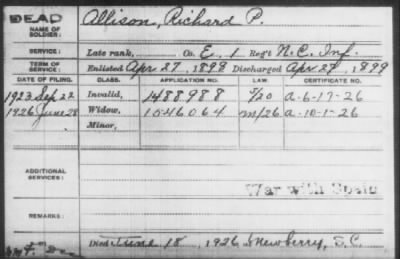 DEAD Allison, Richard P.
NAME OF SOLDIER:
SERVICE: Late rank, Co. E, 1 Reg't N.C. Inf.
TERM OF SERVICE: Enlisted Apr 27, 1898 Discharged Apr 27, 1899
DATE OF FILING. CLASS. APPLICATION NO. LAW. CERTIFICATE NO.
1923 Sep 22 Invalid, 1488988 5/20 a-6-17-26
1926 June 28 Widow, 1546064 m/26 a-10-1-26
Minor,
ADDITIONAL SERVICES:
War with Spain
REMARKS:
Died June 18, 1926 Newberry, S.C.